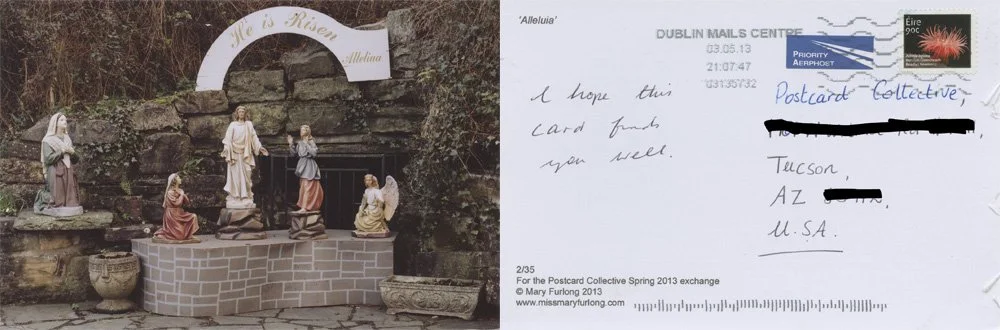 He is Risen
Alleluia
'Alleluia'
DUBLIN MAILS CENTRE
03.05.13
21:07:47
03135732
PRIORITY
AERPHOST
Éire
90c
I hope this
card finds
you well.
Postcard Collective,
Tucson,
AZ
U.S.A.
2/35
For the Postcard Collective Spring 2013 exchange
© Mary Furlong 2013
www.missmaryfurlong.com